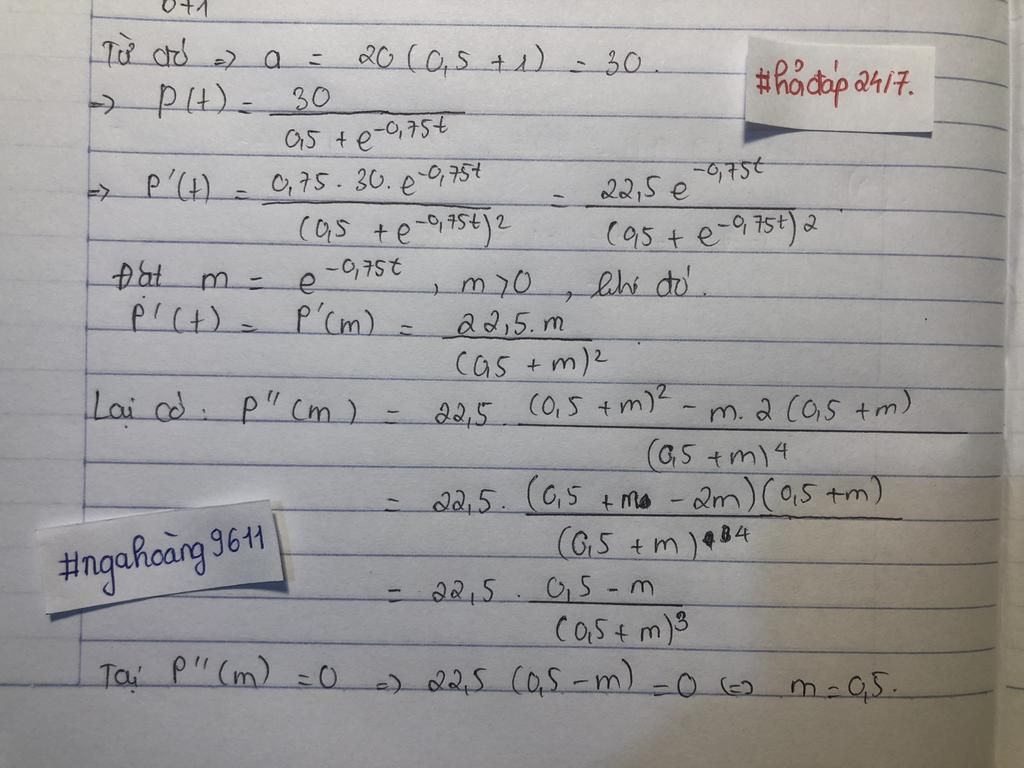 0+1
Từ đó => a = 20(0,5 + 1) = 30.
#hỏiđáp24/7.
=> P(t) = 30 / (0,5 + e^-0,75t)
=> P'(t) = 0,75 . 30. e^-0,75t / (0,5 + e^-0,75t)^2 = 22,5 e^-0,75t / (0,5 + e^-0,75t)^2
Đặt m = e^-0,75t, m>0, khi đó.
P'(t) = P'(m) = 22,5. m / (0,5 + m)^2
Lại có: P''(m) = 22,5. (0,5 + m)^2 - m. 2 (0,5 + m) / (0,5 + m)^4
= 22,5. (0,5 + m - 2m)(0,5 + m) / (0,5 + m)^4
#ngahoàng9611
= 22,5 . 0,5 - m / (0,5 + m)^3
Tại P''(m) = 0 => 22,5 (0,5 - m) = 0 <=> m = 0,5.